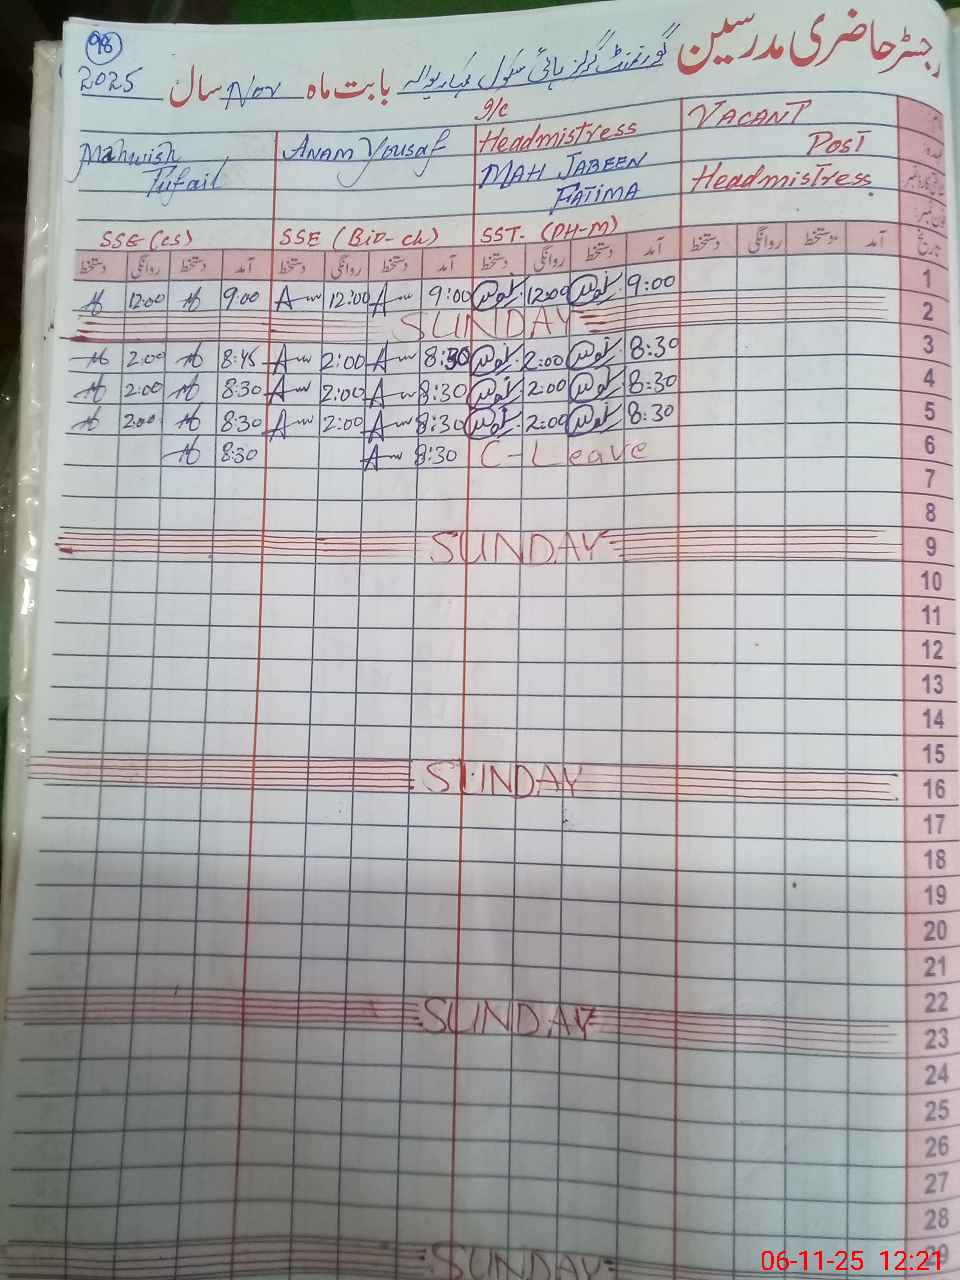 رجسٹر حاضری مدرسین گورنمنٹ گرلز ہائی سکول بابت ماہ Nov سال 2025
98
VACANT Post Headmistress
I/C Headmistress MAH JABEEN FATIMA
ANAM Yousaf
Mahwish Tufail
SST. (PH-M)
SSE (BiO-ch)
SSE (cs)
تاریخ آمد دستخط روانگی دستخط آمد دستخط روانگی دستخط آمد دستخط روانگی دستخط آمد دستخط روانگی دستخط
1 9:00 12:00 9:00 12:00 9:00 12:00
2 SUNDAY
3 8:30 2:00 8:30 2:00 8:45 2:00
4 8:30 2:00 8:30 2:00 8:30 2:00
5 8:30 2:00 8:30 2:00 8:30 2:00
6 C-Leave 8:30 8:30
7
8
9 SUNDAY
10
11
12
13
14
15
16 SUNDAY
17
18
19
20
21
22
23 SUNDAY
24
25
26
27
28
29
SUNDAY
06-11-25 12:21